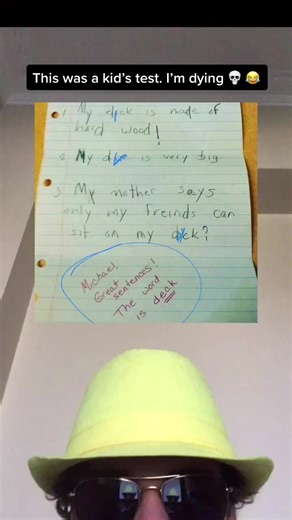 This was a kid's test. I'm dying 💀😂
1. My is made of
hard wood!
2. My is very big
3. My mother says
only my freinds can
sit on my
Michael
Great
sentences!
The word
is deck